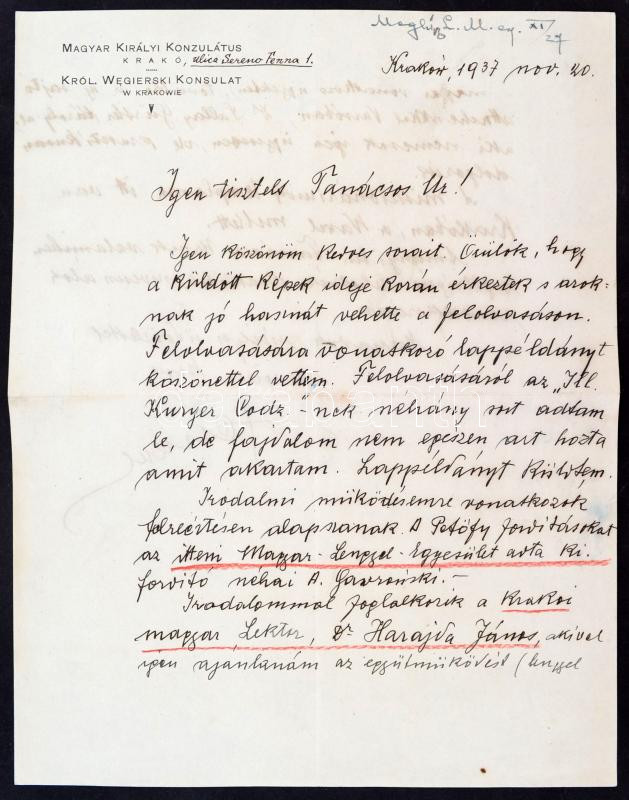 MAGYAR KIRÁLYI KONZULÁTUS
KRAKÓ, ulica Sereno Fenna 1.
KRÓL. WĘGIERSKI KONSULAT
W KRAKOWIE
L. M. XI/27
Kraków, 1937 nov. 20.
Igen tisztelt Tanácsos Úr!
Igen köszönöm kedves sorait. Örülök, hogy
a küldött képek ideje korán érkeztek s azok-
nak jó hasznát vehette a felolvasáson.
Felolvasására vonatkozó lappéldányt
köszönettel vettem. Felolvasásáról az „Ill.
Kuryer Codz"-nek néhány sort adtam
le, de fajdalom nem egészen azt hozta
amit akartam. Lappéldányt küldtem.
Irodalmi működésemre vonatkozók
félreértésen alapszanak. A Petőfy fordításokat
az itteni Magyar-Lengyel-Egyesület adta ki.
fordító néhai A. Gawroński.-
Irodalommal foglalkozik a Krakói
magyar Lektor, Dr Harajda János, akivel
igen ajánlanám az együttműködést (lengyel